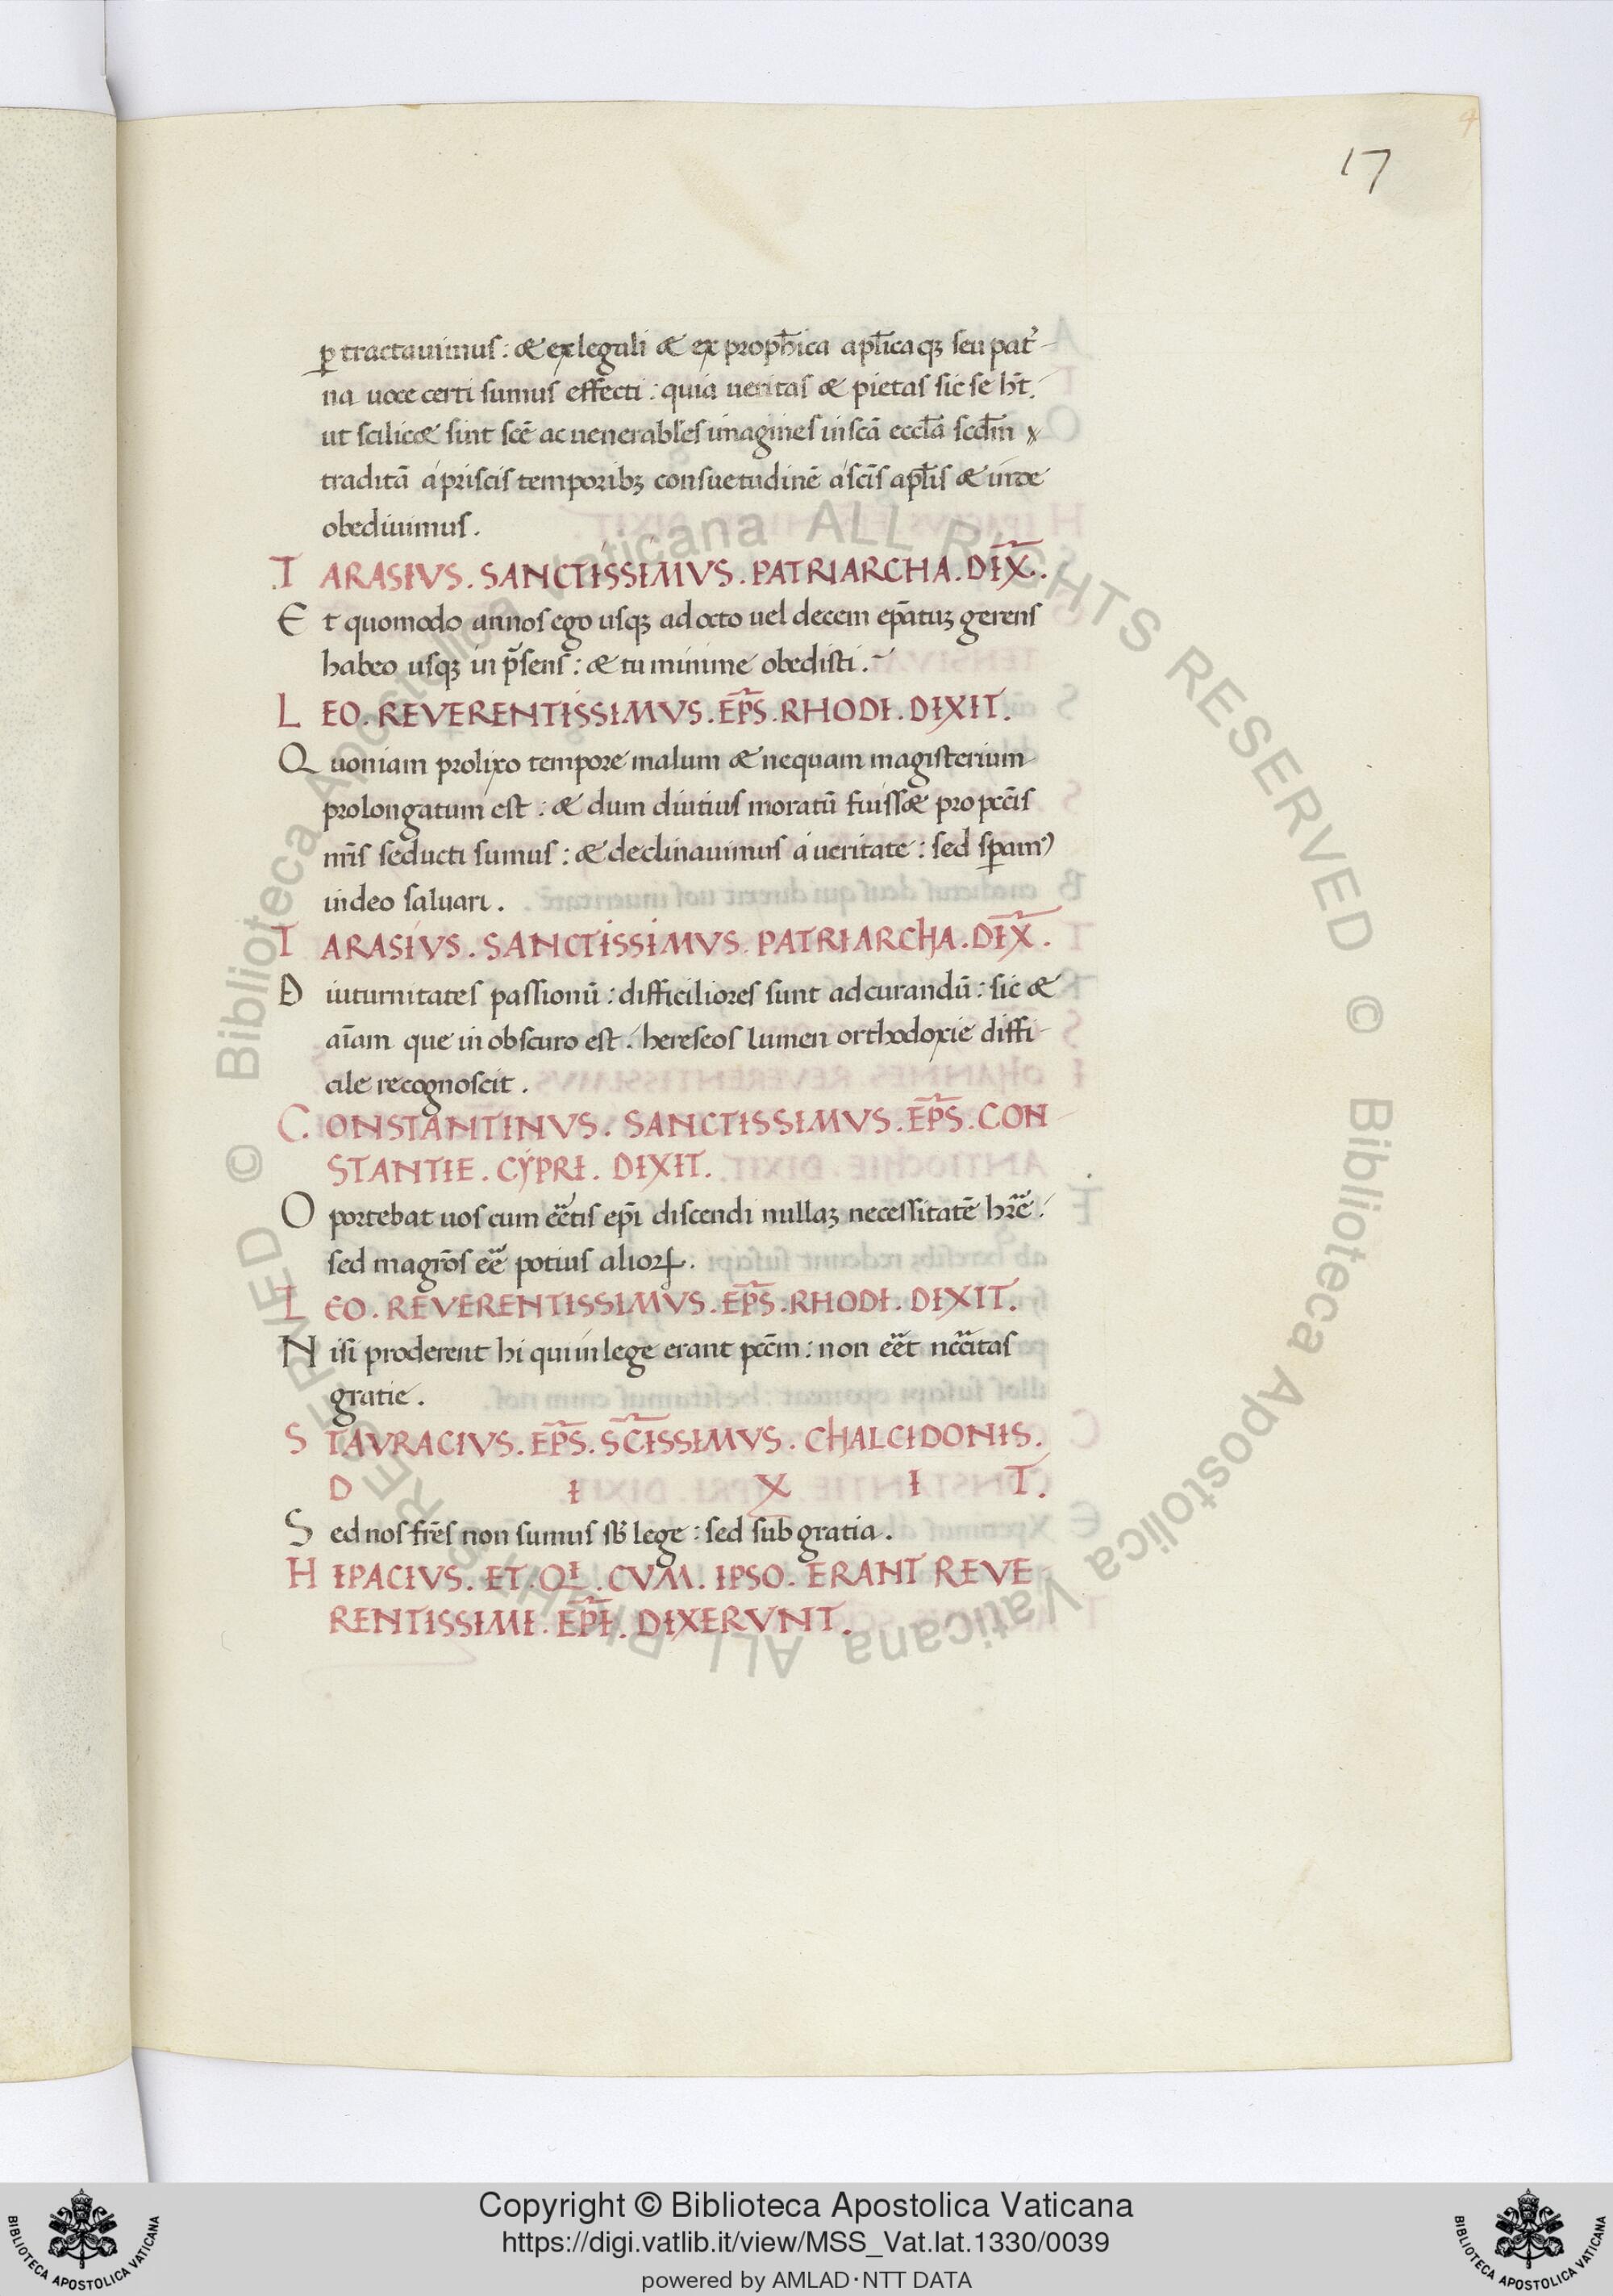 17
p̲tractauimus : & ex legali & ex proph̄ica apl̄icaqꝫ seu pat̾-
na uoce certi sumus effecti : quia ueritas & pietas sic se hn̄t.
ut scilic& sint scē ac uenerabiles imagines in scā eccl̄a scd̄m
traditā a priscis temporibꝫ consuetudinē a scīs apl̄is & inde
obediuimus .
TARASIVS . SANCTISSIMVS . PATRIARCHA . DIX̄ .
Et quomodo annos ego usqꝫ ad octo uel decem ep̄atuꝫ gerens
habeo usqꝫ in p̄sens : & tu minime obedisti .
LEO . REVERENTISSIMVS . EP̄S . RHODI . DIXIT .
Quoniam prolixo tempore malum & nequam magisterium
prolongatum est : & dum diutius moratū fuiss& pro pcc̄is
nr̄is seducti sumus : & declinauimus a ueritate : sed speram᾽
in deo saluari .
TARASIVS . SANCTISSIMVS . PATRIARChA . DIX̄ .
Diuturnitates passionū : difficiliores sunt ad curandū : sic &
aīam que in obscuro est . hereseos lumen orthodoxie diffi-
cile recognoscit .
CONSTANTINVS . SANCTISSIMVS . EP̄S . CON
STANTIE . CYPRI . DIXIT .
Oportebat uos cum eētis ep̄i discendi nullaꝫ necessitatē hr̄e .
sed magr̄os eē potius alioꝝ .
LEO . REVERENTISSIMVS . EP̄S . RHODI . DIXIT .
Nisi proderent hi qui in lege erant pcc̄m : non eēt ncc̄itas
gratie .
STAVRACIVS . EP̄S . SC̄ISSIMVS . ChALCIDONIS .
D I X I T .
Sed nos fr̄es non sumus sb̄ lege : sed sub gratia .
HIPACIVS . ET . QI . CVM . IPSO . ERANT REVE
RENTISSIMI . EP̄I . DIXERVNT .
© Biblioteca Apostolica Vaticana ALL RIGHTS RESERVED © Biblioteca Apostolica Vaticana ALL RIGHTS RESERVED
Copyright © Biblioteca Apostolica Vaticana
https://digi.vatlib.it/view/MSS_Vat.lat.1330/0039
powered by AMLAD・NTT DATA
BIBLIOTECA APOSTOLICA VATICANA
BIBLIOTECA APOSTOLICA VATICANA